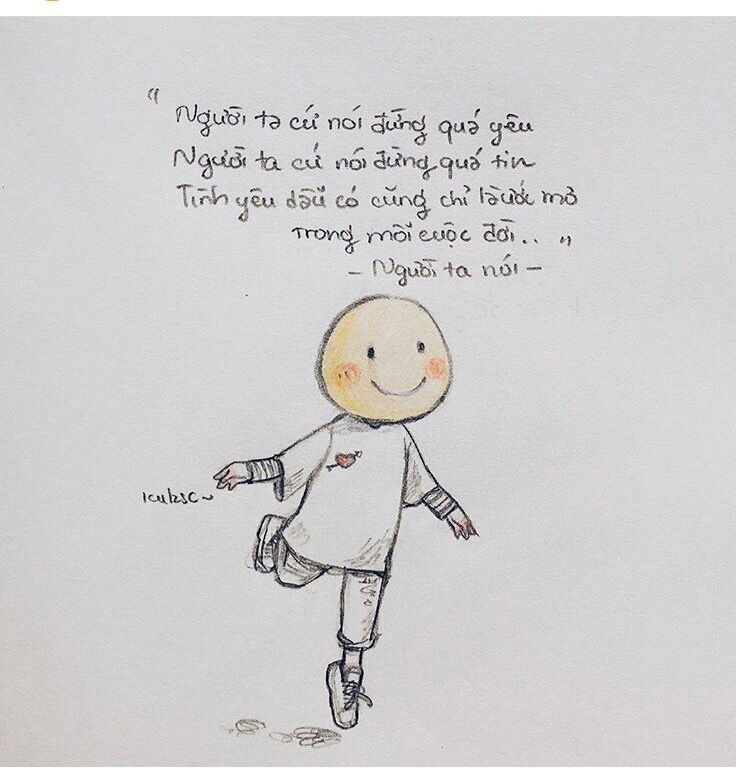 "Người ta cứ nói đừng quá yêu
Người ta cứ nói đừng quá tin
Tình yêu dẫu có cũng chỉ là ước mơ
trong mỗi cuộc đời.."
- Người ta nói -